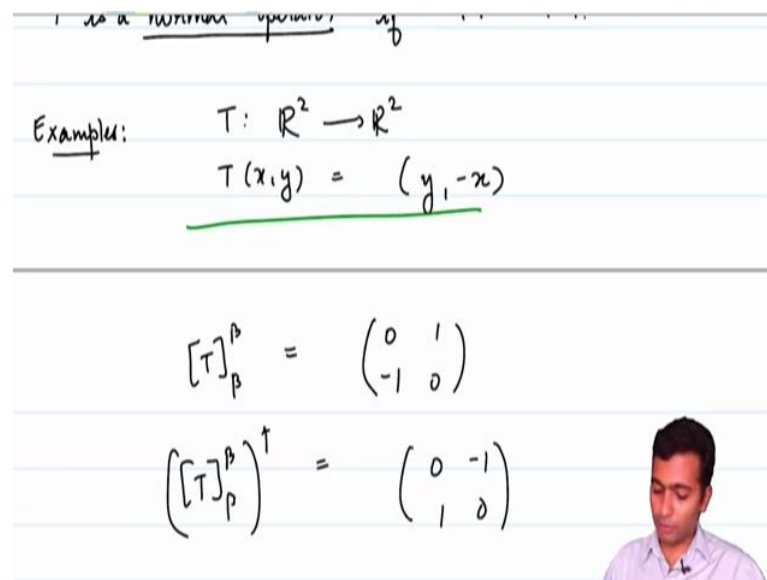 is a normal operator if
Examples: T: ℝ² ⟶ ℝ²
T(x,y) = (y,-x)
[T]_β^β = (0 1; -1 0)
([T]_β^β)^† = (0 -1; 1 0)